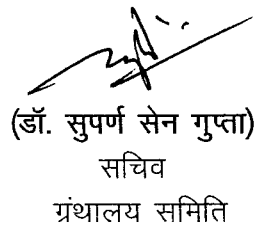 (डॉ. सुपर्ण सेन गुप्ता)
सचिव
ग्रंथालय समिति